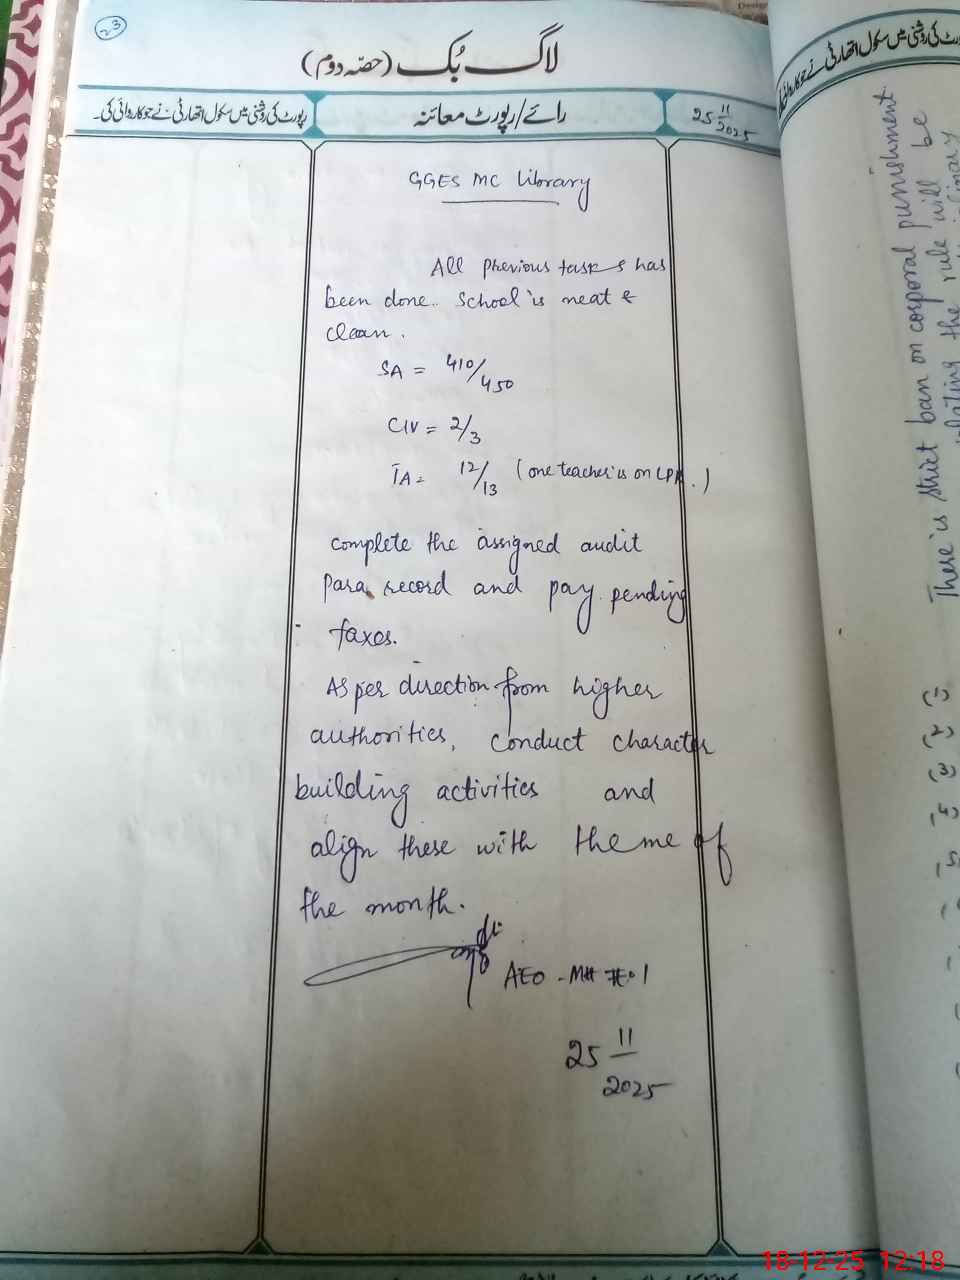 23
لاگ بُک (حصّہ دوم)
رپورٹ کی روشنی میں سکول اتھارٹی نے جو کاروائی کی۔
رائے/رپورٹ معائنہ
25 11/2025
GGES MC Library
All previous tasks has
been done.. School is neat &
clean.
SA = 410/450
CIV = 2/3
TA = 12/13 (one teacher is on LPR.)
complete the assigned audit
Para record and pay pending
taxes.
As per direction from higher
authorities, conduct character
building activities and
align these with theme of
the month.
AEO - MH #01
25 11/2025
رپورٹ کی روشنی میں سکول اتھارٹی نے جو کاروائی
There is strict ban on corporal punishment
the rule will be
(1)
(2)
(3)
18-12-25 12:18